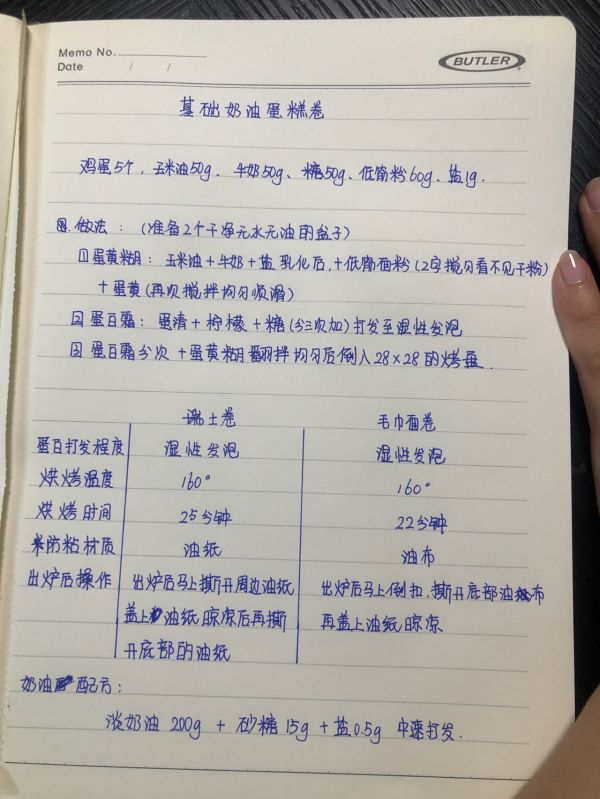 Memo No.
Date / /
BUTLER
基础奶油蛋糕卷
鸡蛋5个，玉米油50g、牛奶50g、糖50g、低筋粉60g、盐1g.
做法：（准备2个干净无水无油的盆子）
①蛋黄糊：玉米油+牛奶+盐 乳化后，+低筋面粉（Z字搅匀看不见干粉）
+蛋黄（再次搅拌均匀顺滑）
②蛋白霜：蛋清+柠檬+糖（分三次加）打发至湿性发泡
③蛋白霜分次+蛋黄糊翻拌均匀后倒入28×28的烤盘.
瑞士卷 毛巾面卷
蛋白打发程度 湿性发泡 湿性发泡
烘烤温度 160° 160°
烘烤时间 25分钟 22分钟
防粘材质 油纸 油布
出炉后操作 出炉后马上撕开周边油纸 出炉后马上倒扣.撕开底部油布
盖上油纸晾凉后再撕 再盖上油纸晾凉
开底部的油纸
奶油配方：
淡奶油 200g + 砂糖 15g + 盐0.5g 中速打发.